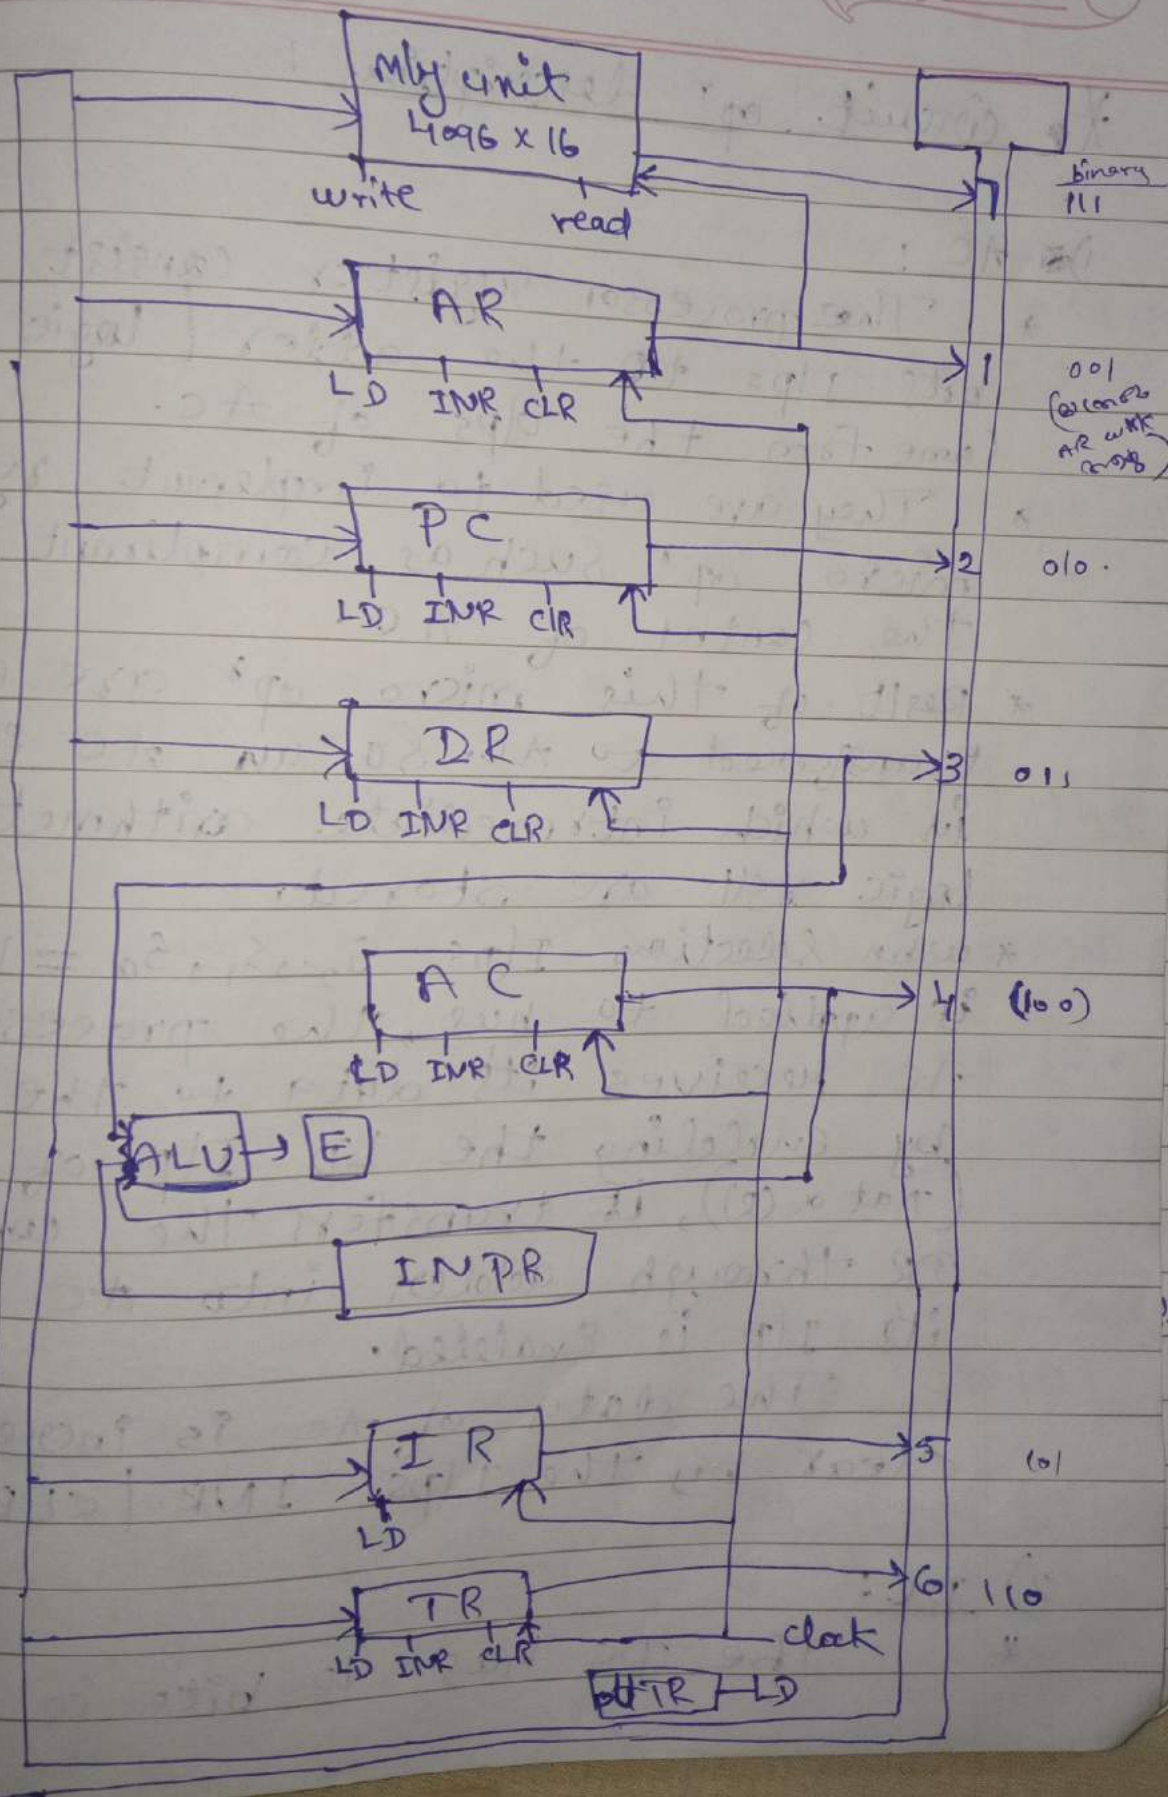 Mly unit
4096 x 16
write
read
7
binary
111
AR
LD INR CLR
1
001
AR
PC
LD INR CLR
2
010.
DR
LD INR CLR
3
011
AC
LD INR CLR
4
(100)
ALU
E
INPR
IR
LD
5
101
TR
LD INR CLR
6
110
clock
OUTR
LD